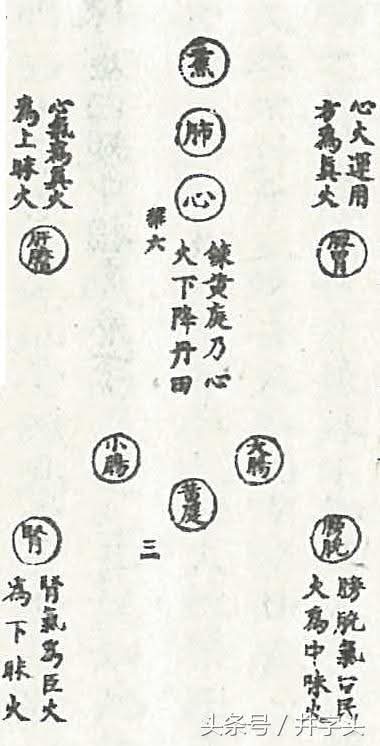 熏
肺
心
心火運用
方為真火
脾胃
心氣為真火
為上昧火
肝膽
鍊黃庭乃心
火下降丹田
六
大腸
小腸
黃庭
三
膀胱
膀胱氣民
火為中昧火
腎
腎氣為臣火
為下昧火
头条号 / 井字头